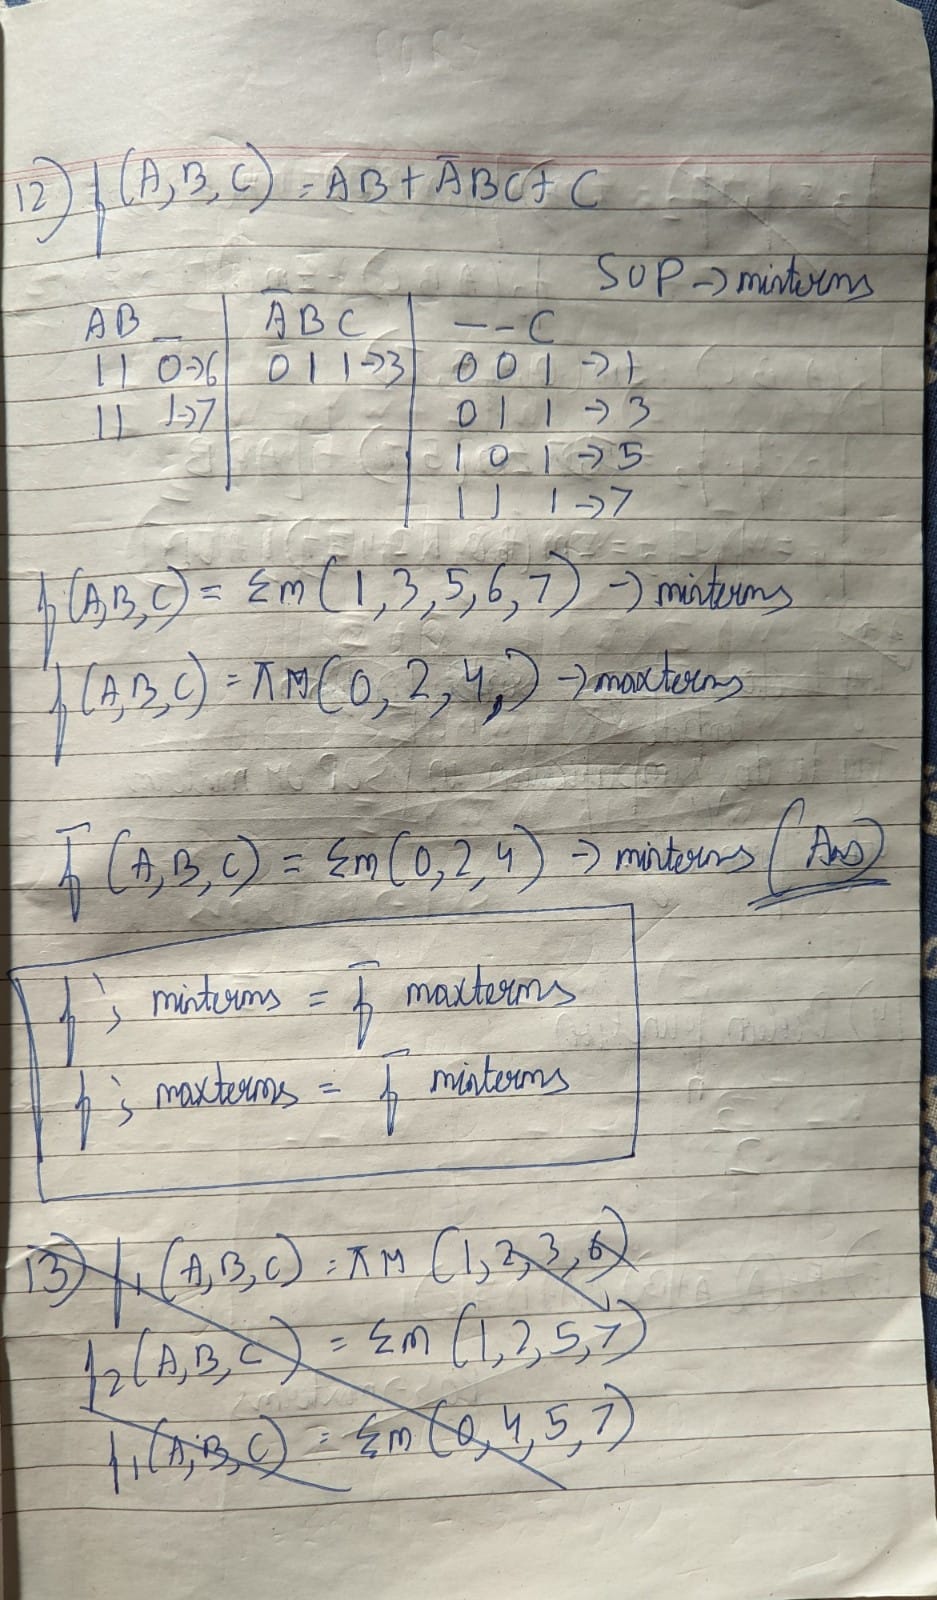 12) f(A,B,C) = AB + A̅BC + C
SOP → minterms
AB_ | A̅BC | --C
11 0→6 | 011→3 | 001 → 1
11 1→7 | 011 → 3
101 → 5
111 → 7
f(A,B,C) = Σm(1,3,5,6,7) → minterms
f(A,B,C) = πM(0,2,4,) → maxterms
f̅(A,B,C) = Σm(0,2,4) → minterms (Ans)
f's minterms = f̅ maxterms
f's maxterms = f̅ minterms
13) f₁(A,B,C) = πM(1,2,3,6)
f₂(A,B,C) = Σm(1,2,5,7)
f₁(A,B,C) = Σm(0,4,5,7)